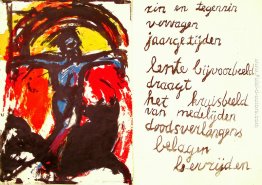 zin en tegenzin
vervagen
jaargetijden
lente bijvoorbeeld
draagt
het kruisbeeld
van medelijden
doodsverlangens
belagen